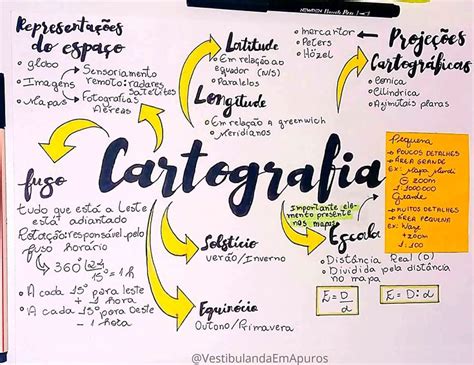 Representações
do espaço
• globo
• Imagens
• Mapas
Sensoriamento
remoto: radares
Satélites
Fotografias
Aéreas
Latitude
• Em relação ao
equador (N/S)
• Paralelos
Longitude
• Em relação a greenwich
• Meridianos
• mercartor
• Peters
• Hözel
Projeções
Cartográficas
• Conica
• Cilíndrica
• Azimutais planas
Cartografia
fuso
Tudo que está a Leste
está adiantado
Rotação: responsável pelo
fuso horário
360° 24
15° = 1h
• A cada 15° para leste
+ 1 hora
• A cada 15° para Oeste
- 1 hora
Solstício
verão/Inverno
Equinócio
Outono/Primavera
Importante ele-
mento presente
nos mapas
Escala
• Distância Real (D)
• Dividida pela distância
no mapa
E = D
d
E = D : d
Pequena
POUCOS DETALHES
ÁREA GRANDE
EX: Mapa Mundi
200m
1:1000.000
Grande
MUITOS DETALHES
ÁREA PEQUENA
EX: Waze
+200m
1:100
@VestibulandaEmApuros